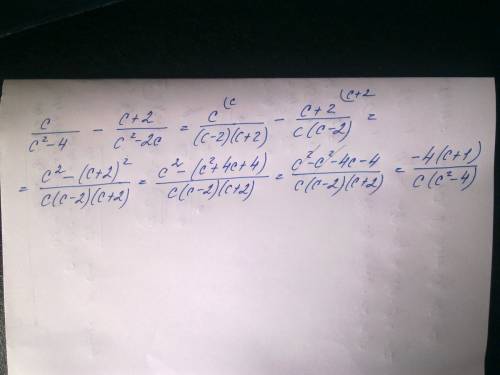 c/(c²-4) - (c+2)/(c²-2c) = c^(c/((c-2)(c+2)) - (c+2)^(c+2/(c(c-2)) =
= (c²-(c+2)²)/(c(c-2)(c+2)) = (c²-(c²+4c+4))/(c(c-2)(c+2)) = (c²-c²-4c-4)/(c(c-2)(c+2)) = (-4(c+1))/(c(c²-4))